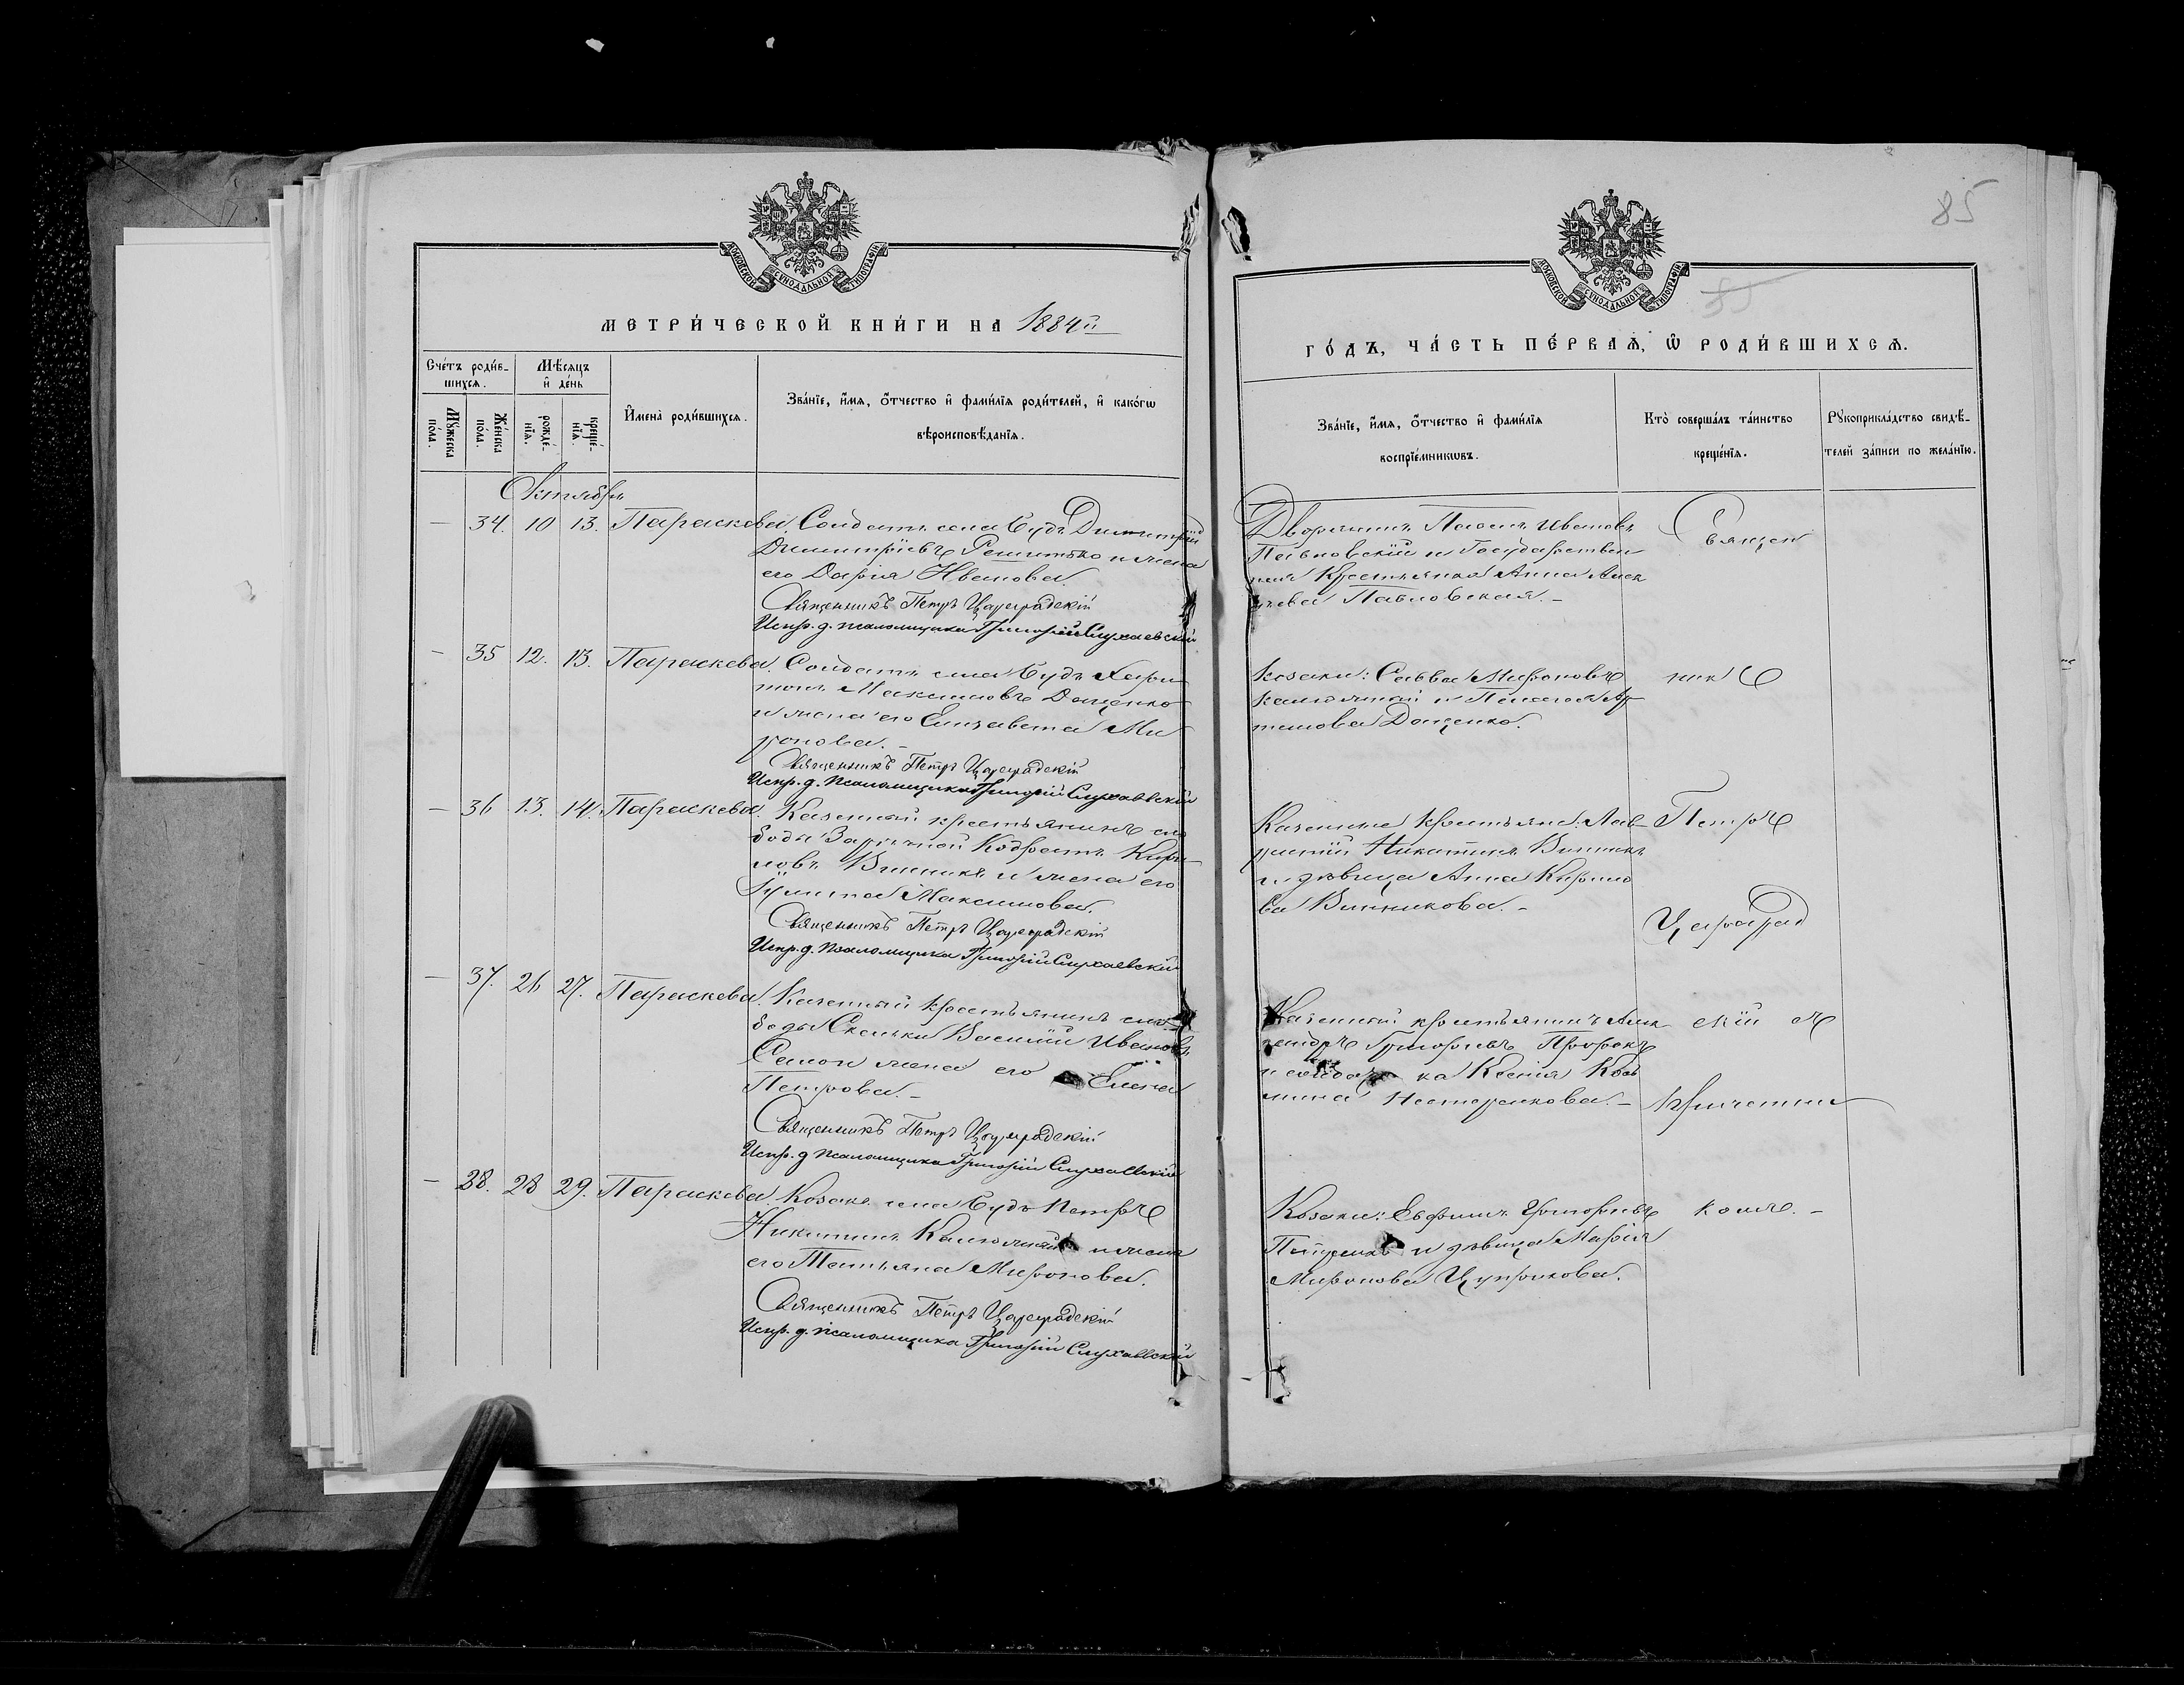 МОСКОВСКОЙ СУНОДАЛЬНОЙ ТИПОГРАФІИ
МЕТРИ́ЧЕСКОЙ КНИ́ГИ НА 1884й
Сче́тъ роди́в-
шихсѧ.
Мѣ́сѧцъ
и҆ де́нь
Мꙋ́жеска по́ла.
Же́нска по́ла.
рожде́-
нїѧ.
креще́-
нїѧ.
И҆мена̀ роди́вшихсѧ.
Зва́нїе, и҆́мѧ, ѻ҆́тчество и҆ фами́лїѧ роди́телей, и҆ како́гѡ
вѣроисповѣ́данїѧ.
Октябрь
— 34. 10 13. Параскева Солдатъ села Будъ Димитрій
Димитріевъ Решитько и жена
его Дарія Иванова.
Священникъ Петръ Цареградскій
Испр. д. псаломщика Григорій Слухаевскій
— 35 12. 13. Параскева. Солдатъ села Будъ Хари-
тонъ Максимовъ Доценко
и жена его Елизавета Ми
ронова. –
Священникъ Петръ Цареградскій
Испр. д. псаломщика Григорій Слухаевскій
— 36 13. 14. Параскева. Казенный крестьянинъ сло
боды Заручной Кодратъ Кири-
ловъ Винникъ и жена его
Іулита Максимова.
Священникъ Петръ Цареградскій
Испр. д. псаломщика Григорій Слухаевскій
— 37. 26 27. Параскева. Казенный крестьянинъ сло
боды Василій Ивановъ
жена его Елена
Петрова. –
Священникъ Петръ Цареградскій
Испр. д псаломщика Григорій Слухаевскій
— 38. 28 29. Параскева Козакъ села Будъ Петръ
Никитинъ и жена
его Татьяна Миронова.
Священникъ Петръ Цареградскій
Испр. д. псаломщика Григорій Слухаевскій
85
МОСКОВСКОЙ СУНОДАЛЬНОЙ ТИПОГРАФІИ
ГО́ДЪ, ЧА́СТЬ ПЕ́РВАѦ, Ѡ҆ РОДИ́ВШИХСѦ.
Зва́нїе, и҆́мѧ, ѻ҆́тчество и҆ фами́лїѧ
воспрїе́мникѡвъ.
Кто̀ соверша́лъ та́инство
креще́нїѧ.
Рꙋкоприкла́дство свидѣ́-
телей за́писи по жела́нїю.
Дворянинъ Ивановъ
Павловскій и Государствен
ная Крестьянка Анна Алек
ѣева Павловская. –
Священ
Козаки: Савва Мироновъ
и Пелагея Ар
темова Доценко.
никъ
Казенные крестьяне: Лав-
рентій Никитинъ Винникъ
и дѣвица Анна Кирило
ва Винникова. –
Петръ
Цареград
Казенный крестьянинъ Алек
Григорьевъ Пророкъ
и солдатка Ксенія Козь
мина Нестеренкова. –
скій съ
причетни
Козаки: Евфимъ Григорьевъ
и дѣвица Марія
Миронова Цуприкова.
комъ. –